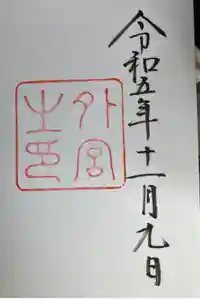 令和五年十一月九日
外宮之印